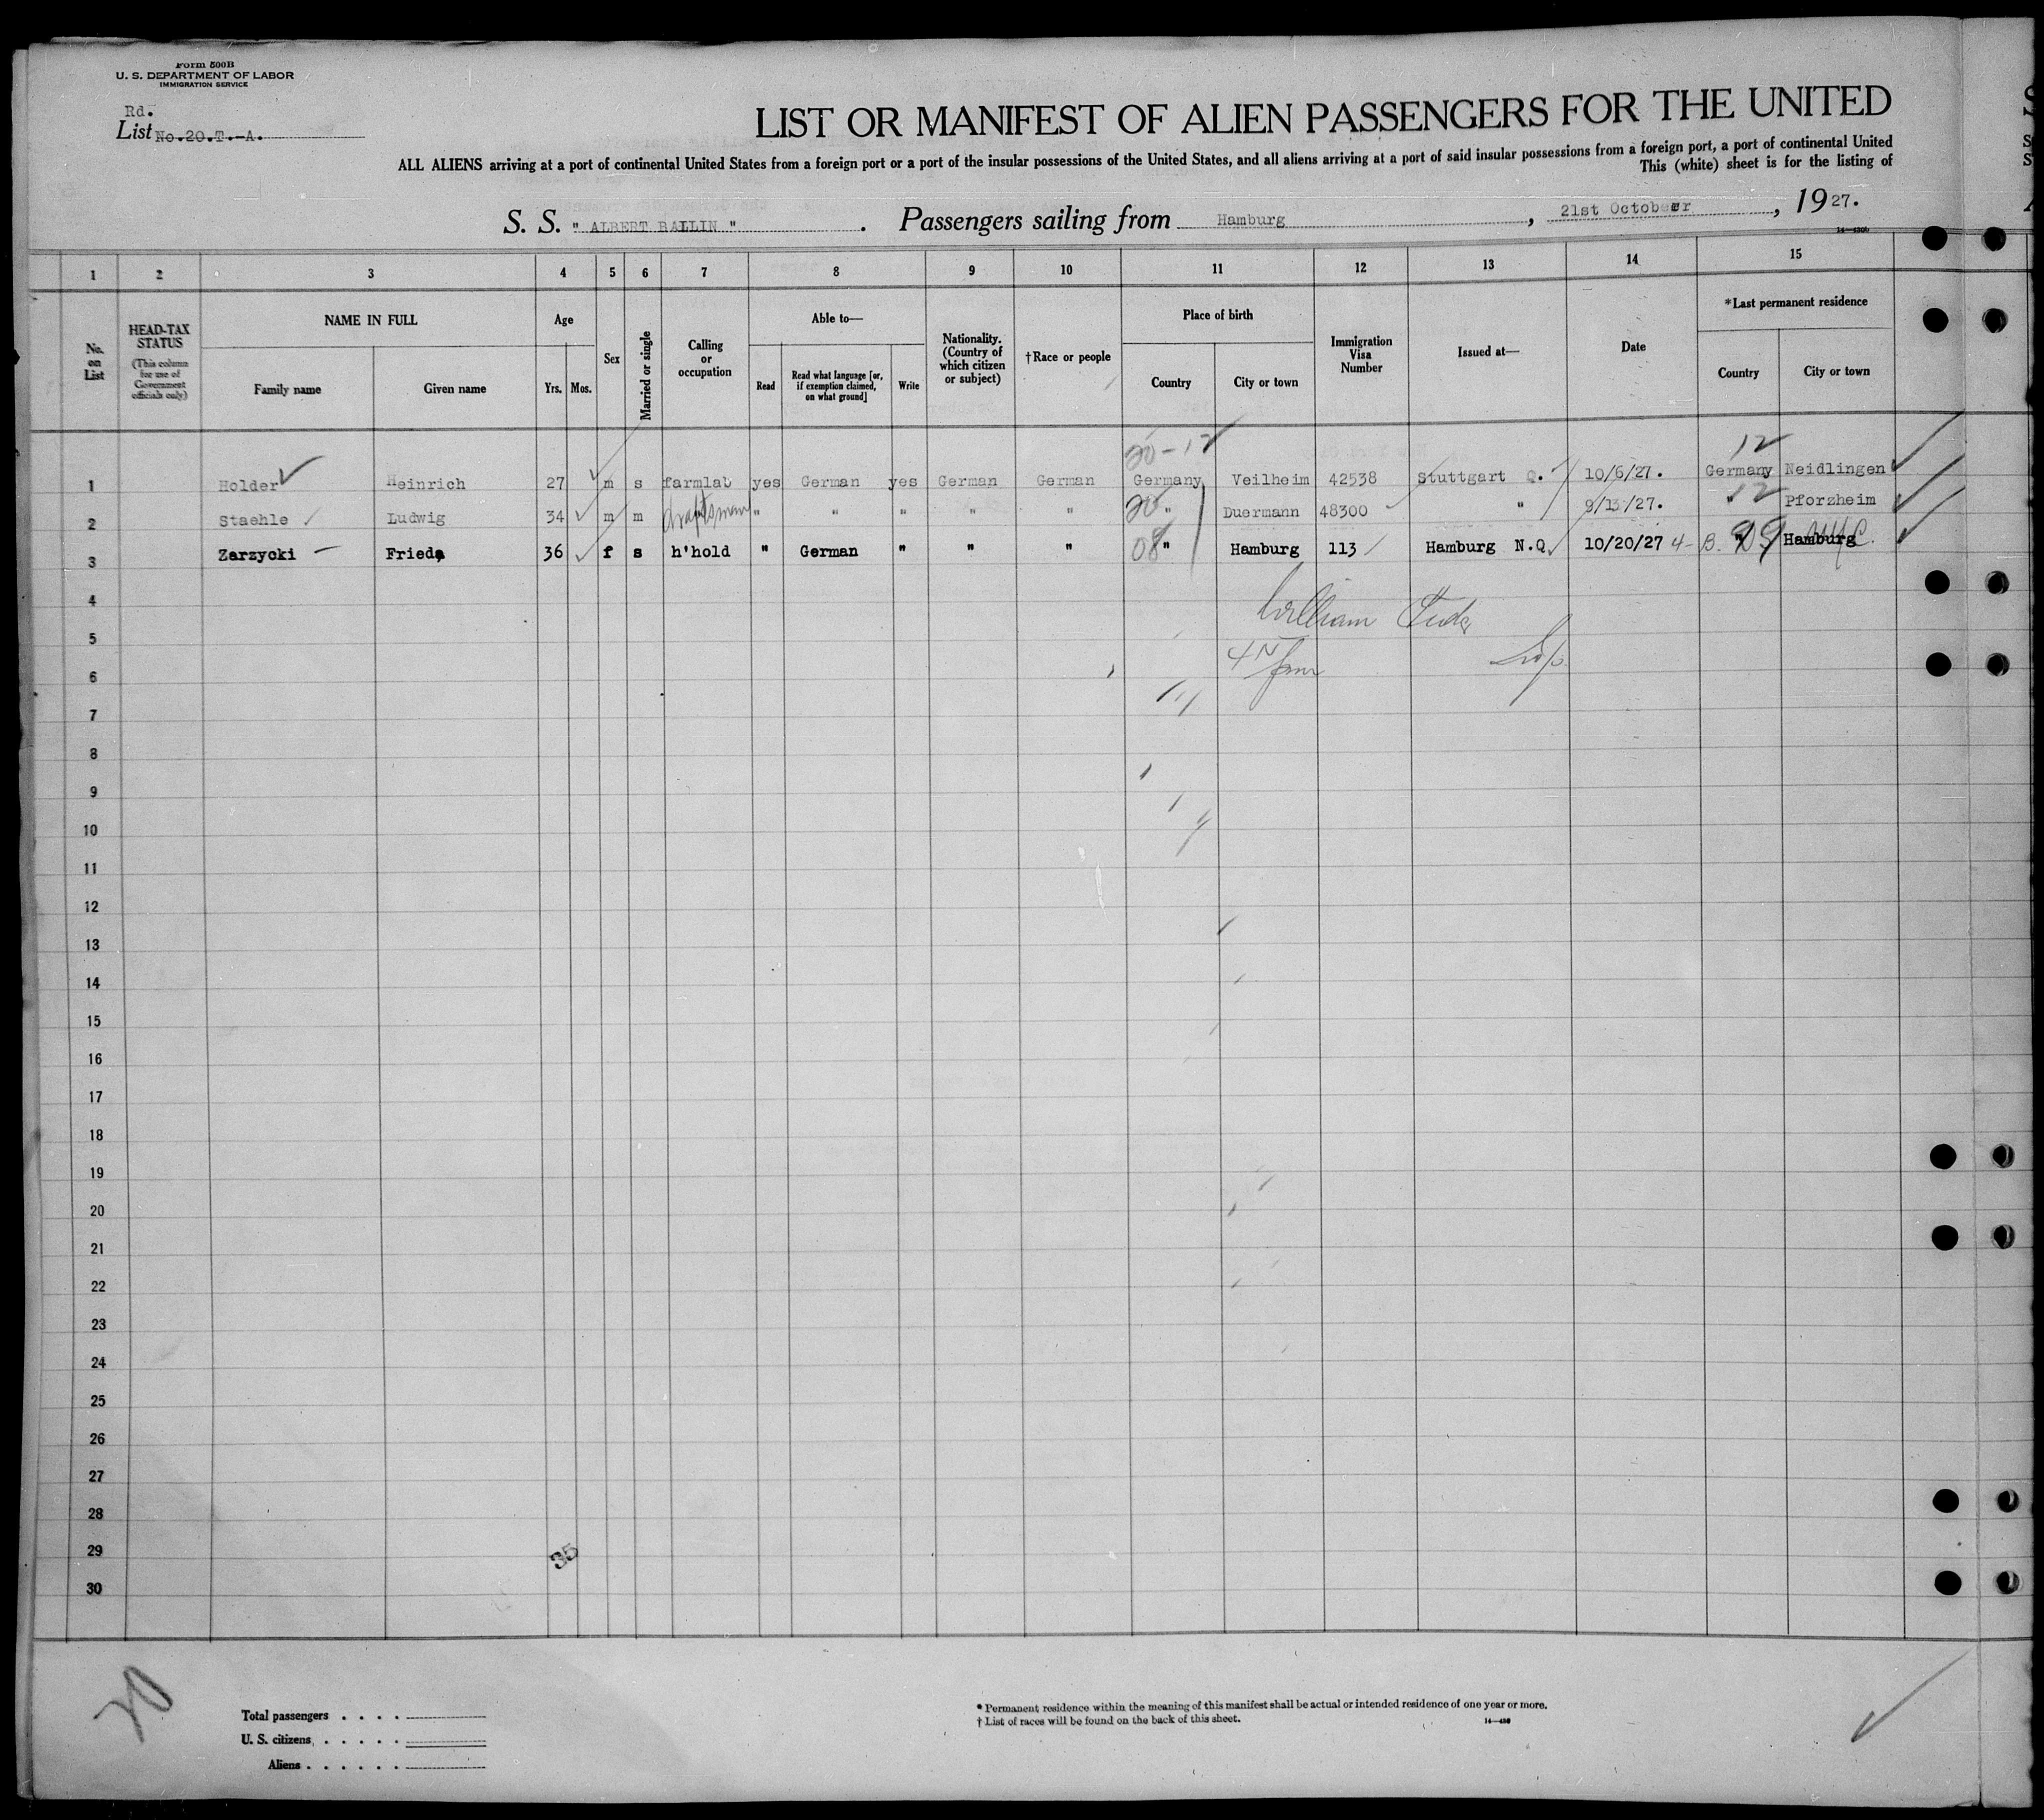 Form 500B
U. S. DEPARTMENT OF LABOR
IMMIGRATION SERVICE
Rd.
List No.20.T.-A.
LIST OR MANIFEST OF ALIEN PASSENGERS FOR THE UNITED
ALL ALIENS arriving at a port of continental United States from a foreign port or a port of the insular possessions of the United States, and all aliens arriving at a port of said insular possessions from a foreign port, a port of continental United
This (white) sheet is for the listing of
S. S. " ALBERT BALLIN " . Passengers sailing from Hamburg , 21st October , 1927.
14—430b
1 2 3 4 5 6 7 8 9 10 11 12 13 14 15
No. on List
HEAD-TAX STATUS
(This column for use of Government officials only)
NAME IN FULL
Family name Given name
Age
Yrs. Mos.
Sex
Married or single
Calling or occupation
Able to—
Read Read what language [or, if exemption claimed, on what ground] Write
Nationality. (Country of which citizen or subject)
†Race or people
Place of birth
Country City or town
Immigration Visa Number
Issued at—
Date
*Last permanent residence
Country City or town
20-12 12
1 Holder Heinrich 27 m s farmlab yes German yes German German Germany Veilheim 42538 Stuttgart Q. 10/6/27. Germany Neidlingen
2 Staehle Ludwig 34 m m draftsman " " " " " 20 " Duermann 48300 " 9/13/27. " 12 Pforzheim
3 Zarzycki Frieda 36 f s h'hold " German " " " 08 " Hamburg 113 Hamburg N.Q. 10/20/27 4- B. " Hamburg
4
William
5
6
7
8
9
10
11
12
13
14
15
16
17
18
19
20
21
22
23
24
25
26
27
28
29
35
30
20
Total passengers . . . .
U. S. citizens . . . . .
Aliens . . . . . .
* Permanent residence within the meaning of this manifest shall be actual or intended residence of one year or more.
† List of races will be found on the back of this sheet.